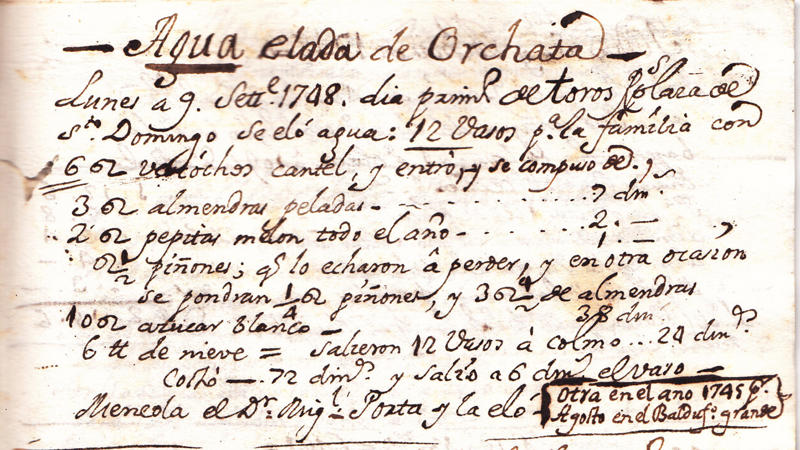 — Agua elada de Orchata —
Lunes a 9. Setre. 1748. dia primr. de toros Plaza de
Sto. Domingo se eló agua: 12 Vasos pa. la familia con
6 oz vscochos cantel, y entró, y se compuso de,
3 oz almendras peladas - - - - 7 dins.
2 oz pepitas melon todo el año - - - - 2. —
oz ½ piñones; qe. lo echaron â perder, y en otra ocasion 1. —
se pondran ¼ oz piñones, y 3 oz ½ de almendras
10 oz azucar blanco — 38 din
6 tt de nieve = salieron 12 Vasos à colmo ... 24 dins.
Costó —. 72 dins. y salió a 6 dins. el vaso —
Meneola el Dr. Migl. Porta y la eló
Otra en el año 1745 pr.
Agosto en el Balduf. grande